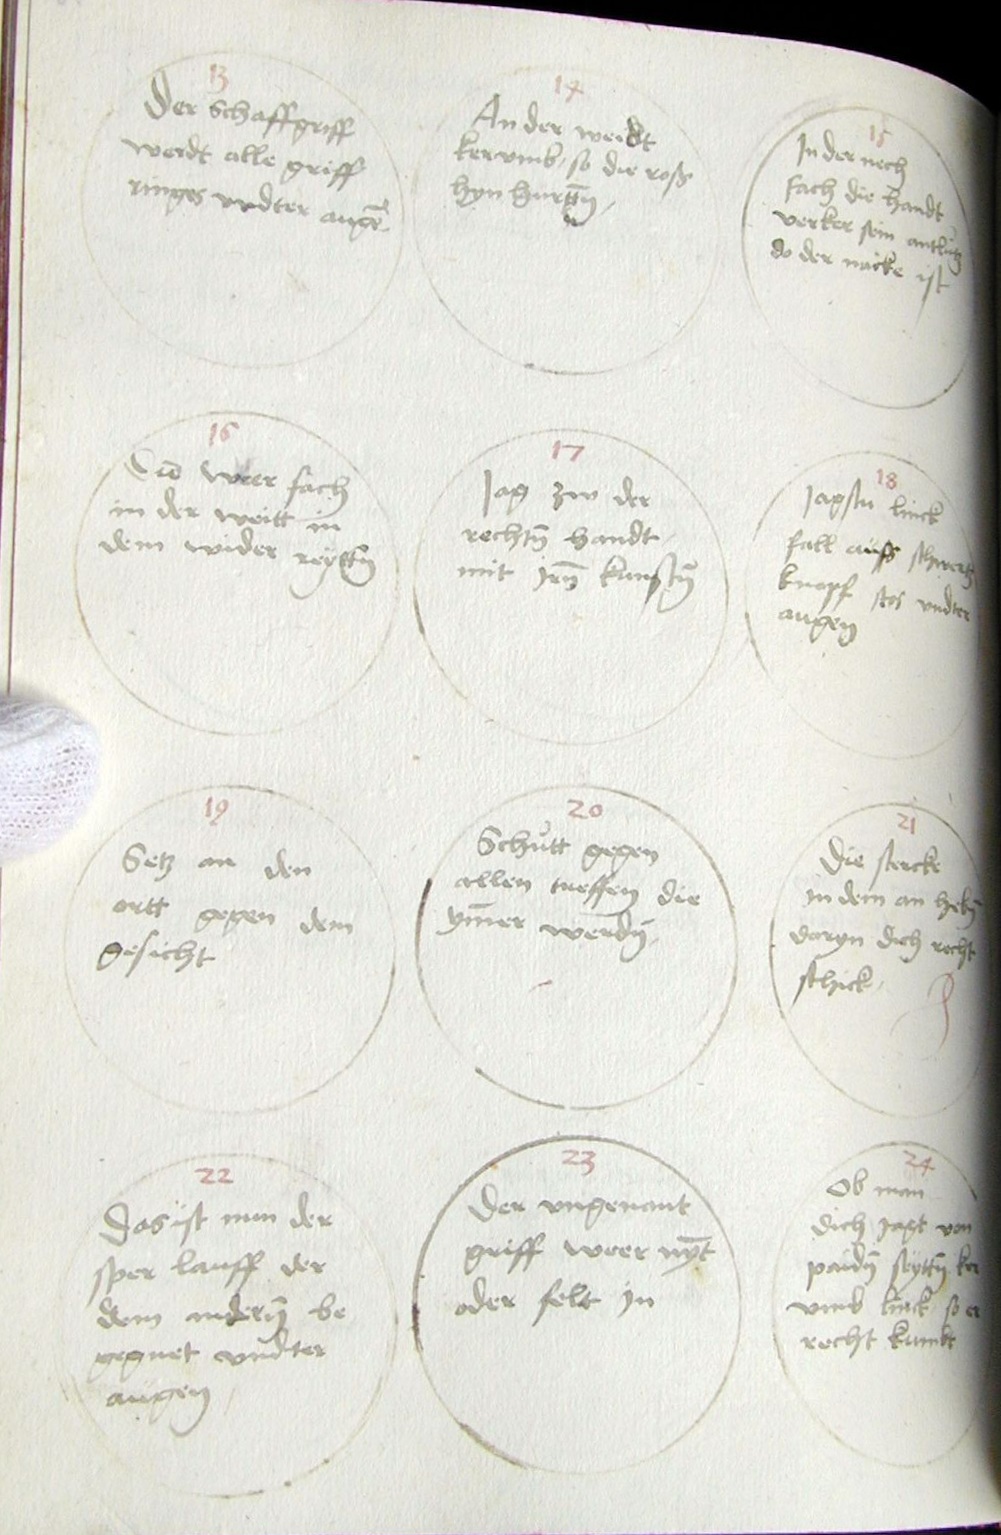 13
Der schaffgriff
werdt alle griff
ringes vndter augē
14
An der weidt
ker vmb so die roß
hyn hurttn̄
15
In der nech
fach die handt
verker sein antlutz
do der nacke ist
16
Die weer fach
in der weitt in
dem wider reyttn̄
17
Jag zw der
rechtn̄ handt
mit irn̄ kunstn̄
18
Jagstu linck
fall auff schwertz
knopf stos vndter
augen
19
Setz an den
ortt gegen dem
gesicht
20
Schütt gegen
allen treffen die
ym̄er werdn̄
21
Die stercke
in dem an hebn̄
daryn dich recht
schick
22
Das ist nun der
sper lauff der
dem andern̄ be
gegnet vndter
augen
23
Der vngenant
griff weer nyt̄
oder felt in
24
Ob man
dich jagt von
paidn̄ seyttn̄ ker
vmb linck so er
recht kumbt